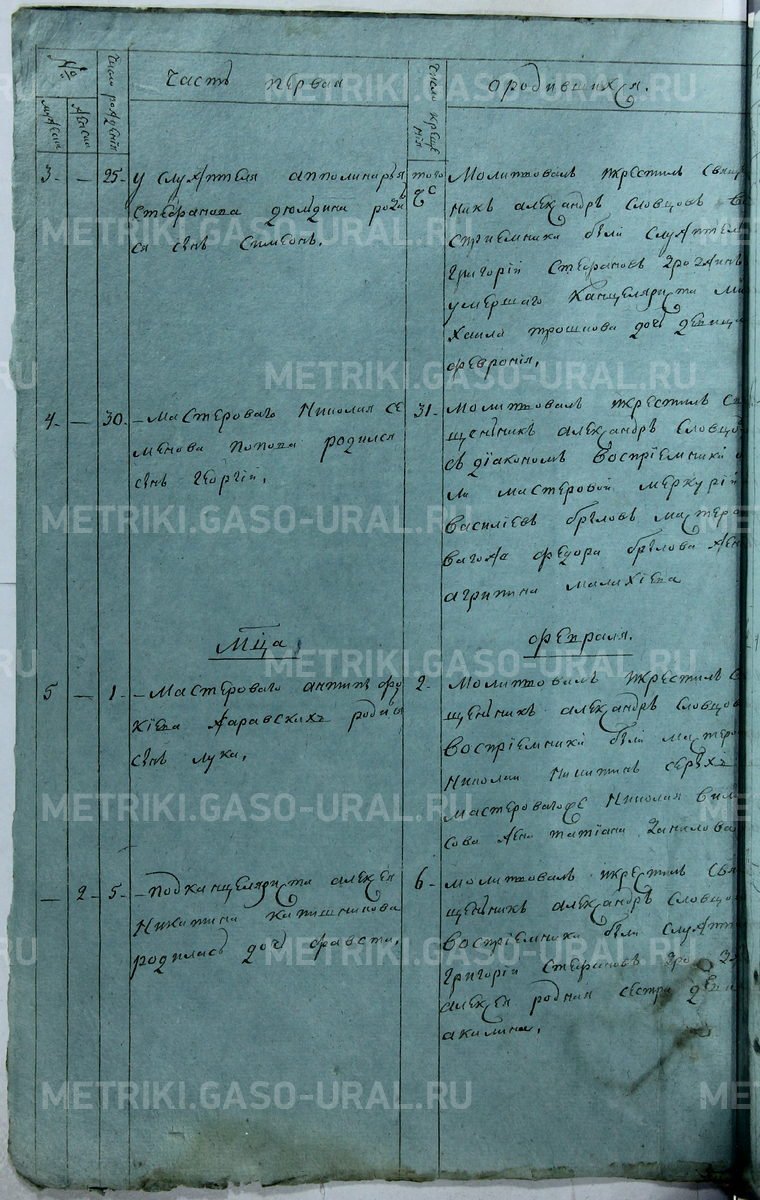 №
Часть первая
о родившихся.
мужеск
женск
число рождения
число креще
нія
3 - 25 у служителя апполинарья
Стефанова дюлдина роди
ся сынъ Симеонъ.
того
жъ
Молитвовалъ и крестилъ свяще
никъ александръ Словцовъ
стриемники были служитель
григорий Стефановъ
умершаго Канцеляриста Ми
хаила трошкова дочь девица
февронія.
4 - 30 - мастероваго Николая се
менова попова родился
сынъ георгій.
31 - молитвовалъ и крестилъ св
щенникъ александръ Словцо
съ діакономъ воспріемники б
ли мастеровой меркурій
василіевъ бѣловъ мастеро
вагожъ федора бѣлова жен
агрипина малахіева
Мца февраля.
5 - 1 - мастероваго антипы фо
кіева Жаравскихъ родилс
сынъ лука.
2 - молитвовалъ и крестилъ с
щенникъ александръ Словцов
воспріемники были мастеро
николай никитинъ
мастероваго же николая
сова жена татіана данилова
- 2 - 5 - подканцеляриста алексея
Никитина катишникова
родилась дочь фавста.
6 - молитвовалъ и крестилъ свя
щенникъ александръ Словцо
воспріемники были служит
григорій Стефановъ
алексея родная сестра девиц
акилина.
METRIKI.GASO-URAL.RU